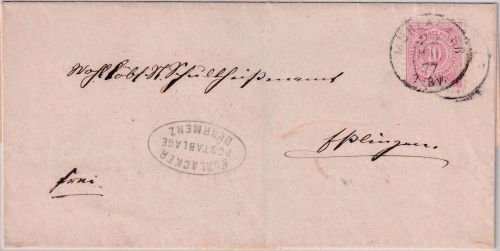 Wohllöbl. K. Schultheißenamt
Eßlingen.
frei.
MÜHLACKER
POSTABLAGE
DÜRRMENZ
MÜHLACKER
10